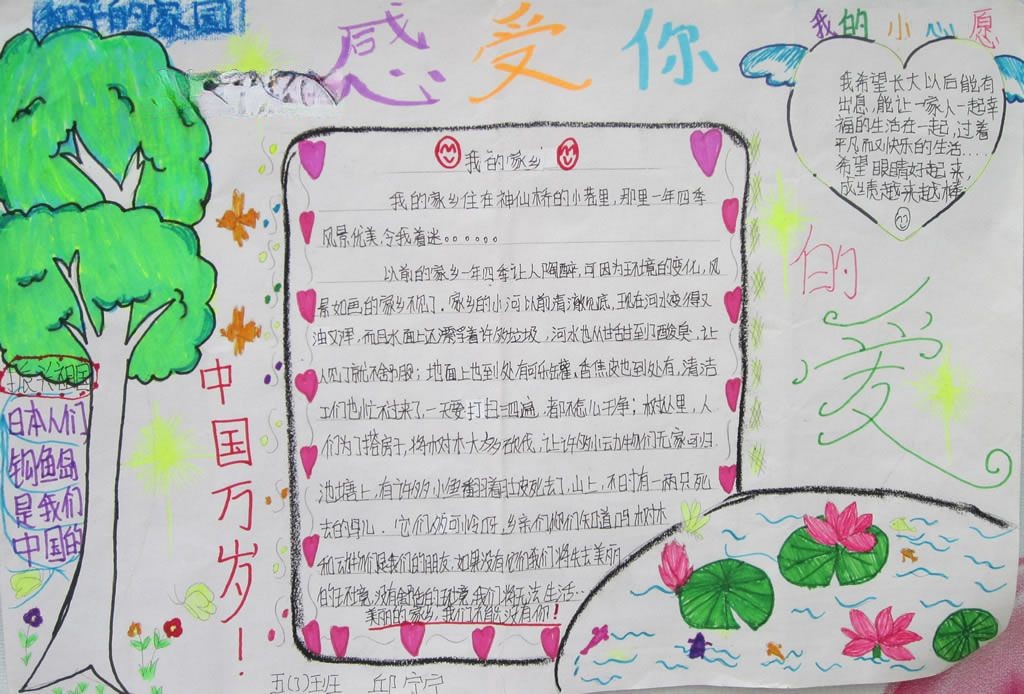 和平的家园
感受你
的
爱
我的小心愿
我希望长大以后能有
出息,能让一家人一起幸
福的生活在一起,过着
平凡而又快乐的生活....
希望眼睛好起来,
成绩越来越棒
我的家乡
我的家乡住在神仙桥的小巷里,那里一年四季
风景优美,令我着迷。。。。。。
以前的家乡一年四季让人陶醉,可因为环境的变化,风
景如画的家乡不见了.家乡的小河以前清澈见底,现在河水变得又
油又浑,而且水面上还漂浮着许多垃圾,河水也从甘甜到了酸臭,让
人见了就不舒服;地面上也到处有可乐罐,香焦皮也到处有,清洁
工们也忙不过来了,一天要打扫三四遍,都不怎么干净;树丛里,人
们为了搭房子,将树木大多砍伐,让许多小动物们无家可归.
池塘上,有许多小鱼翻着肚皮死去了,山上,不时有一两只死
去的鸟儿.它们多可怜呀,乡亲们你们知道吗树木
和动物们是我们的朋友.如果没有你们我们将失去美丽
的环境,没有的环境,我们将无法生活..
美丽的家乡,我们不能没有你!
中国万岁!
祖国
日本人们
钓鱼岛
是我们
中国的
五(3)班 邱宁宁